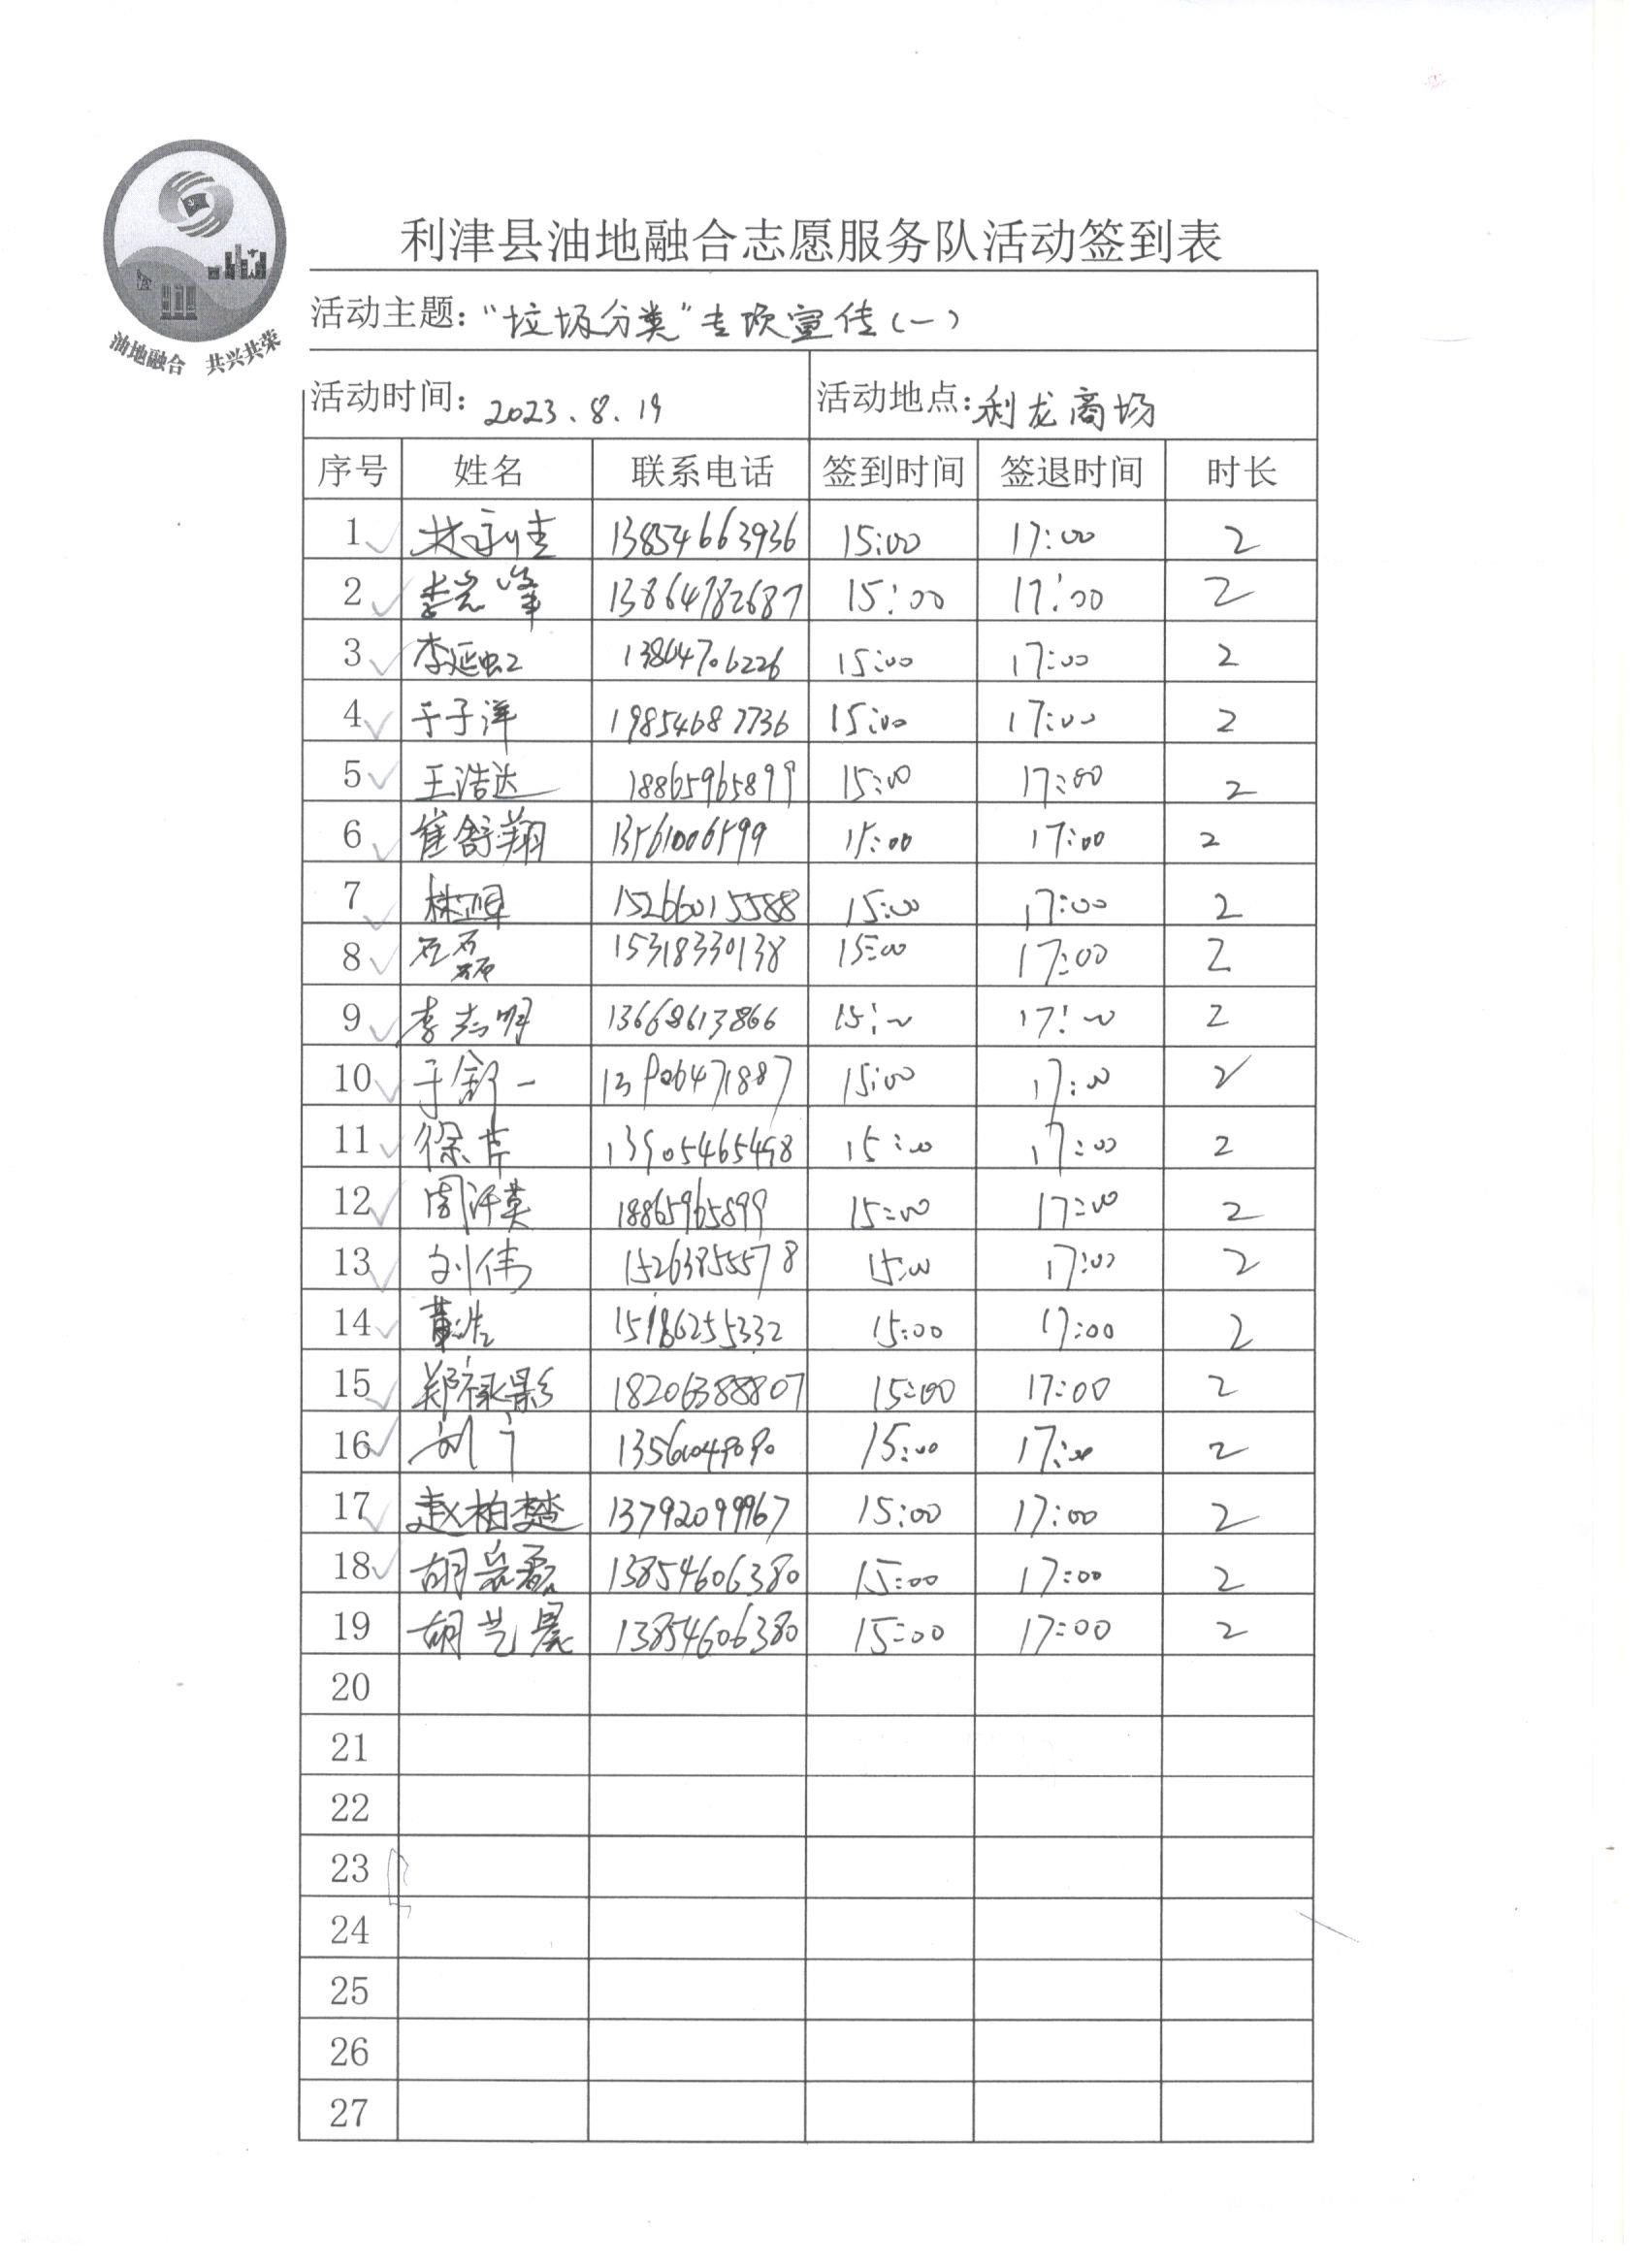 利津县油地融合志愿服务队活动签到表
油地融合 共兴共荣
活动主题：“垃圾分类”专项宣传（一）
活动时间：2023.8.19 活动地点：利龙商场
序号 姓名 联系电话 签到时间 签退时间 时长
1 13854663936 15:00 17:00 2
2 李岩峰 13864782687 15:00 17:00 2
3 李延虹 13864706226 15:00 17:00 2
4 于子洋 19854687736 15:00 17:00 2
5 王浩达 18865965899 15:00 17:00 2
6 崔舒翔 13561006599 15:00 17:00 2
7 15266015588 15:00 17:00 2
8 石磊 15318330138 15:00 17:00 2
9 李志明 13668613866 15:00 17:00 2
10 于舒一 13906471887 15:00 17:00 2
11 徐芹 13905465498 15:00 17:00 2
12 18865965899 15:00 17:00 2
13 刘伟 15263855578 15:00 17:00 2
14 董浩 15186255332 15:00 17:00 2
15 郑禄影 18206388807 15:00 17:00 2
16 15:00 17:00 2
17 赵柏楚 13792099967 15:00 17:00 2
18 13854606380 15:00 17:00 2
19 胡艺晨 13854606380 15:00 17:00 2
20
21
22
23
24
25
26
27